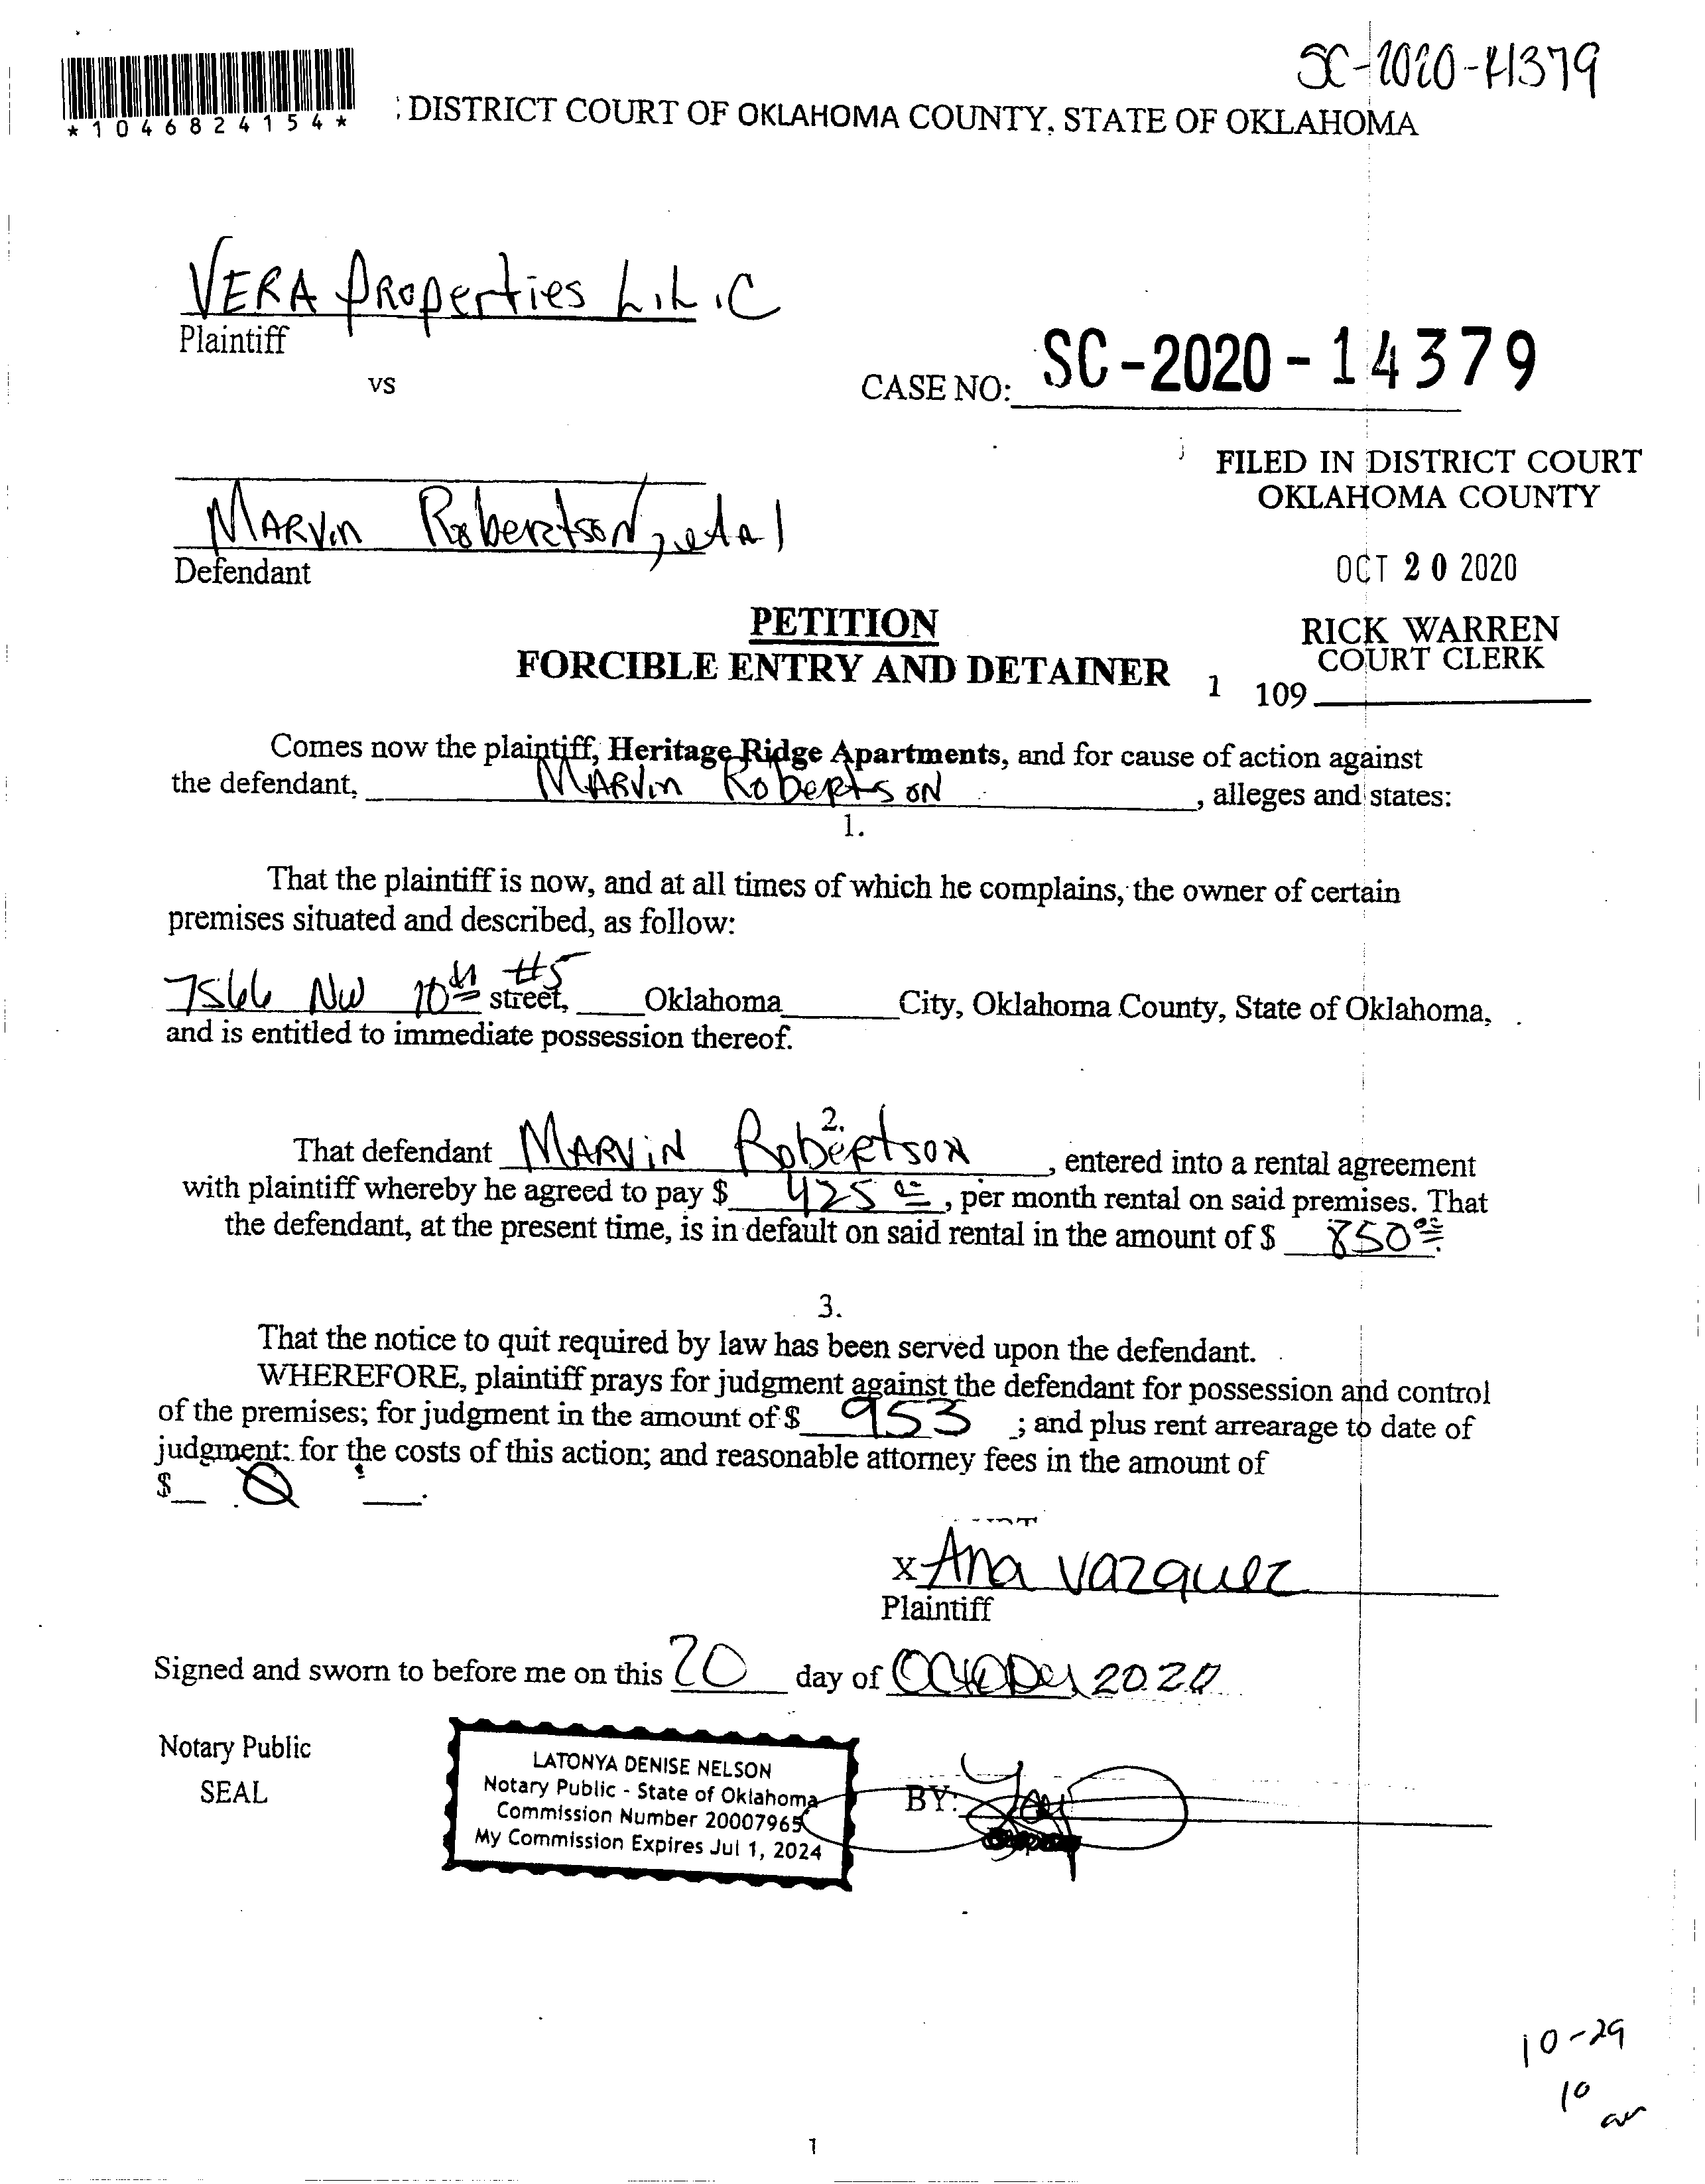 SC-2020-14379
*1046824154*
: DISTRICT COURT OF OKLAHOMA COUNTY, STATE OF OKLAHOMA
VERA Properties L.L.C
Plaintiff
vs
CASE NO: SC-2020-14379
FILED IN DISTRICT COURT
OKLAHOMA COUNTY
MARVIN Robertson, et al
Defendant
OCT 20 2020
PETITION
RICK WARREN
COURT CLERK
FORCIBLE ENTRY AND DETAINER
1 109
Comes now the plaintiff, Heritage Ridge Apartments, and for cause of action against
the defendant, MARVIN Robertson, alleges and states:
1.
That the plaintiff is now, and at all times of which he complains, the owner of certain
premises situated and described, as follow:
7566 NW 10th #5 street, Oklahoma City, Oklahoma County, State of Oklahoma,
and is entitled to immediate possession thereof.
2.
That defendant MARVIN Robertson, entered into a rental agreement
with plaintiff whereby he agreed to pay $ 425 00, per month rental on said premises. That
the defendant, at the present time, is in default on said rental in the amount of $ 850 00.
3.
That the notice to quit required by law has been served upon the defendant.
WHEREFORE, plaintiff prays for judgment against the defendant for possession and control
of the premises; for judgment in the amount of $ 953 ; and plus rent arrearage to date of
judgment: for the costs of this action; and reasonable attorney fees in the amount of
$ 0 .
X Ana Vazquez
Plaintiff
Signed and sworn to before me on this 20 day of October 2020
Notary Public
SEAL
LATONYA DENISE NELSON
Notary Public - State of Oklahoma
Commission Number 20007965
My Commission Expires Jul 1, 2024
BY:
10-29
10
am
1